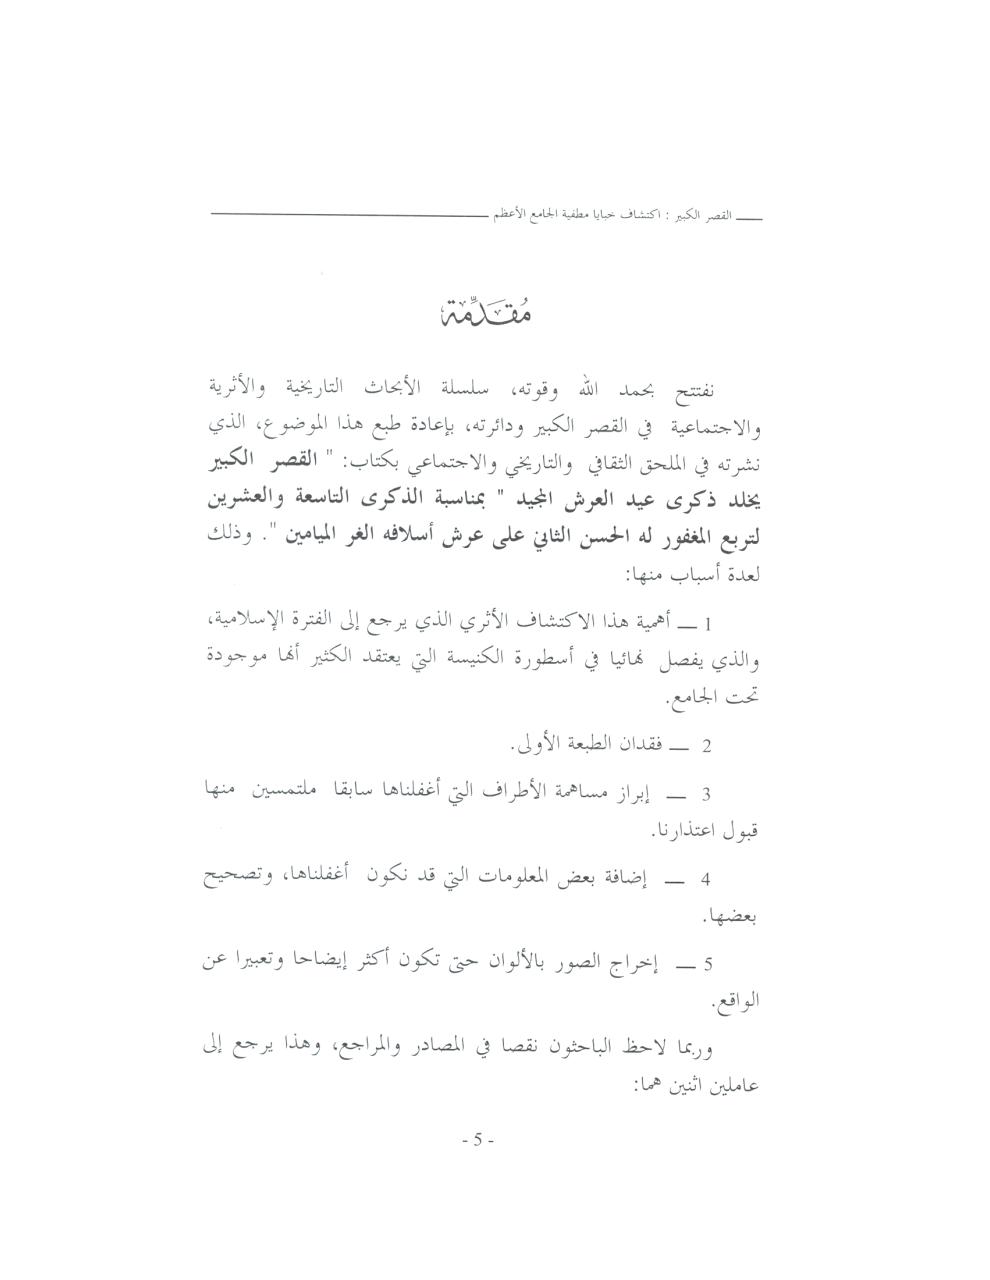 القصر الكبير : اكتشاف خبايا مطفية الجامع الأعظم
مُقَدِّمة
نفتتح بحمد الله وقوته، سلسلة الأبحاث التاريخية والأثرية
والاجتماعية في القصر الكبير ودائرته، بإعادة طبع هذا الموضوع، الذي
نشرته في الملحق الثقافي والتاريخي والاجتماعي بكتاب: " القصر الكبير
يخلد ذكرى عيد العرش المجيد " بمناسبة الذكرى التاسعة والعشرين
لتربع المغفور له الحسن الثاني على عرش أسلافه الغر الميامين ". وذلك
لعدة أسباب منها:
1 — أهمية هذا الاكتشاف الأثري الذي يرجع إلى الفترة الإسلامية،
والذي يفصل نهائيا في أسطورة الكنيسة التي يعتقد الكثير أنها موجودة
تحت الجامع.
2 — فقدان الطبعة الأولى.
3 — إبراز مساهمة الأطراف التي أغفلناها سابقا ملتمسين منها
قبول اعتذارنا.
4 — إضافة بعض المعلومات التي قد نكون أغفلناها، وتصحيح
بعضها.
5 — إخراج الصور بالألوان حتى تكون أكثر إيضاحا وتعبيرا عن
الواقع.
وربما لاحظ الباحثون نقصا في المصادر والمراجع، وهذا يرجع إلى
عاملين اثنين هما:
- 5 -